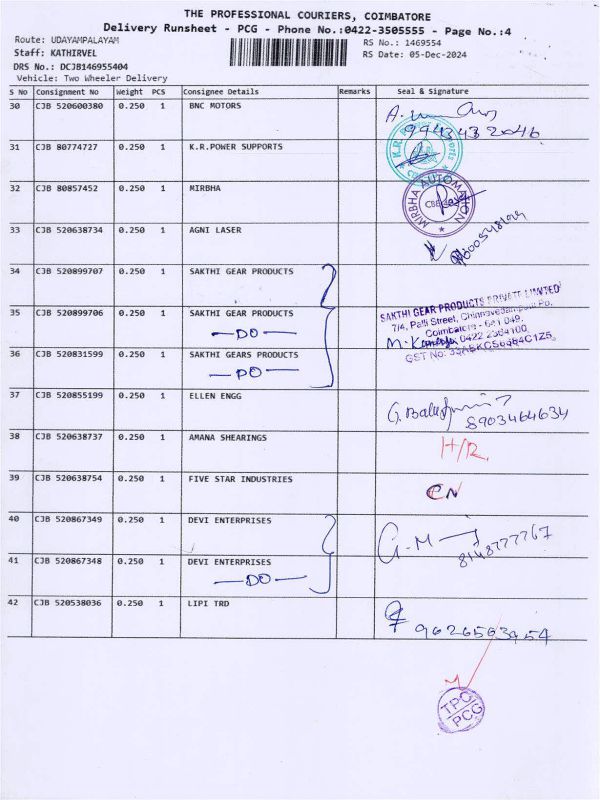 THE PROFESSIONAL COURIERS, COIMBATORE
Delivery Runsheet - PCG - Phone No.:0422-3505555 - Page No.:4
Route: UDAYAMPALAYAM
RS No.: 1469554
Staff: KATHIRVEL
RS Date: 05-Dec-2024
DRS No.: DCJB146955404
Vehicle: Two Wheeler Delivery
S No Consignment No Weight PCS Consignee Details Remarks Seal & Signature
30 CJB 520600380 0.250 1 BNC MOTORS
9943432046
31 CJB 80774727 0.250 1 K.R.POWER SUPPORTS
K.R.
32 CJB 80857452 0.250 1 MIRBHA
MIRBHA AUTOMATION
CBE
33 CJB 520638734 0.250 1 AGNI LASER
34 CJB 520899707 0.250 1 SAKTHI GEAR PRODUCTS
35 CJB 520899706 0.250 1 SAKTHI GEAR PRODUCTS
—DO—
SAKTHI GEAR PRODUCTS PRIVATE LIMITED
7/4, Palli Street, Chinnavedampatti Po.
Coimbatore - 641 049.
0422
GST No:
36 CJB 520831599 0.250 1 SAKTHI GEARS PRODUCTS
—DO—
37 CJB 520855199 0.250 1 ELLEN ENGG
8903464634
38 CJB 520638737 0.250 1 AMANA SHEARINGS
H/R.
39 CJB 520638754 0.250 1 FIVE STAR INDUSTRIES
CN
40 CJB 520867349 0.250 1 DEVI ENTERPRISES
G.M
8148777767
41 CJB 520867348 0.250 1 DEVI ENTERPRISES
—DO—
42 CJB 520538036 0.250 1 LIPI TRD
TPC
PCG